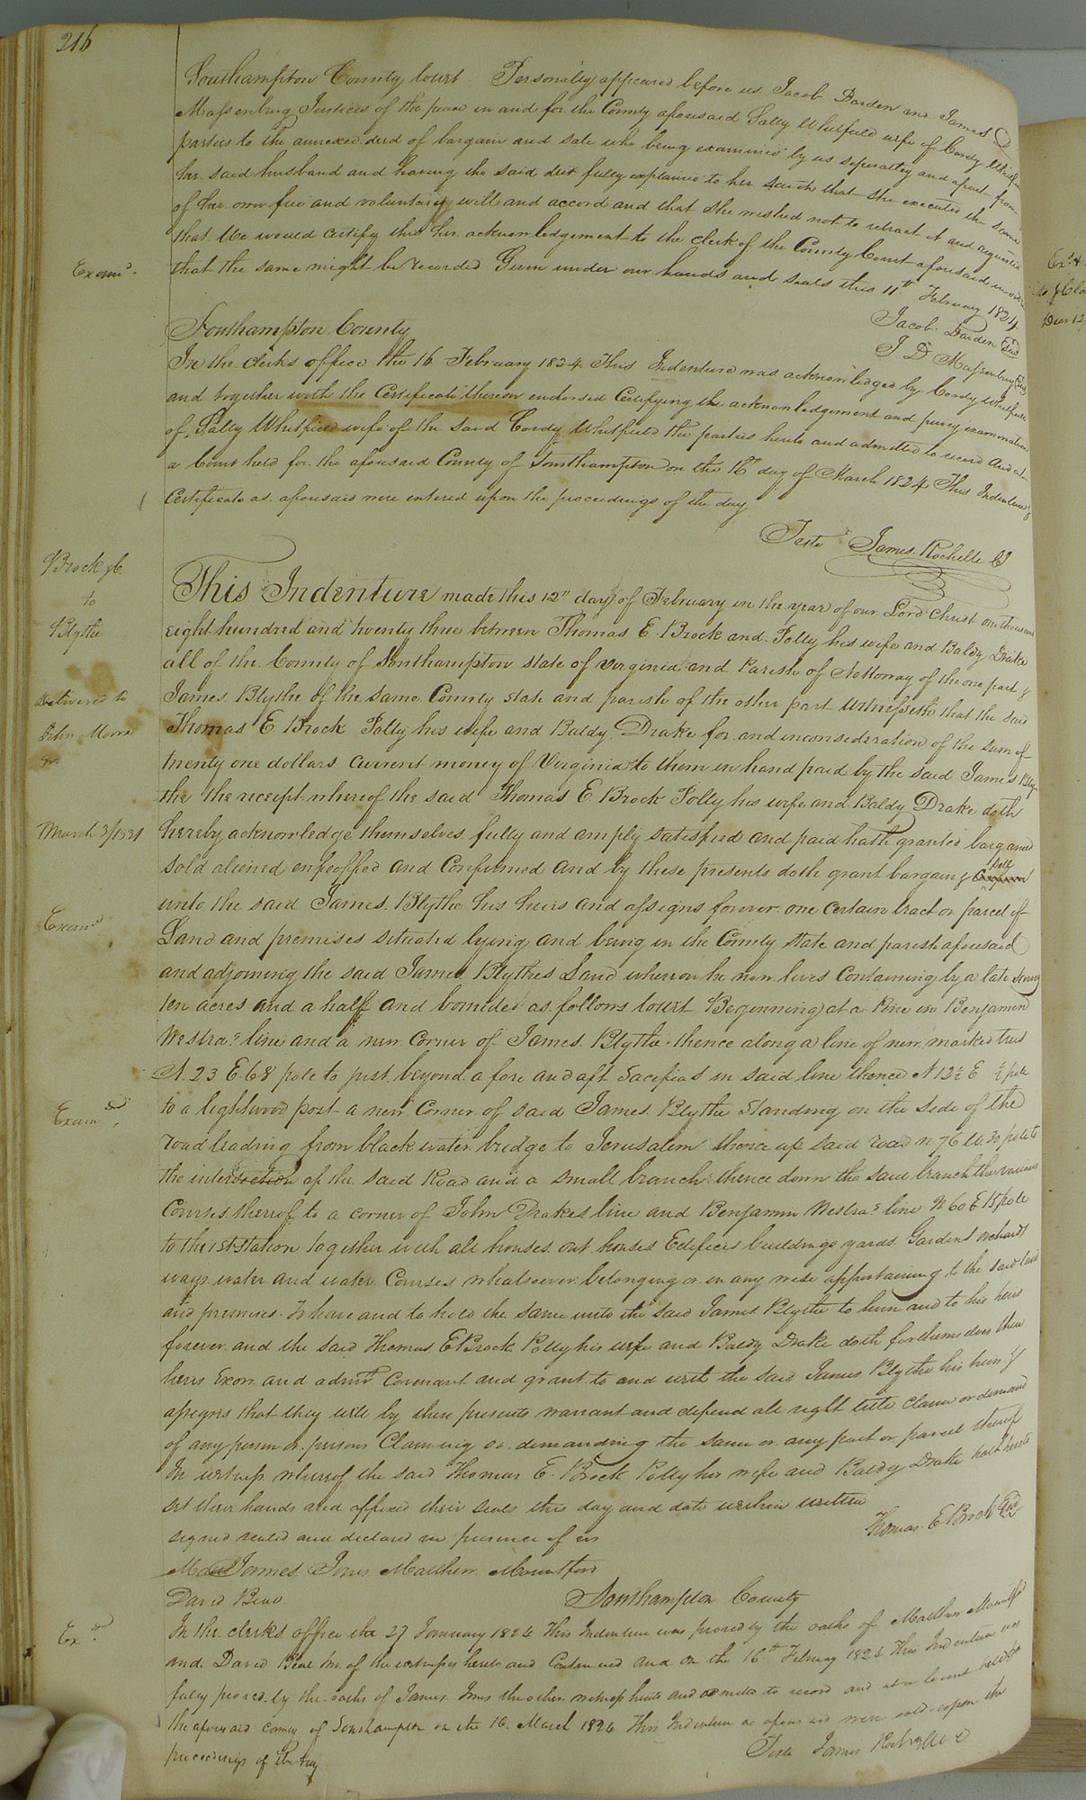 216
Southampton County to wit Personally appeared before us Jacob Darden and James D
Massenburg Justices of the peace in and for the County aforesaid Sally Whitfield wife of Cordy Whitfield
parties to the annexed deed of bargain and sale who being examined by us seperately and apart from
her said husband and having the said deed fully explained to her saith that she executed the same
of her own free and voluntary will and accord and that she wished not to retract it and requested
that we would certify this her acknowledgement to the clerk of the County Court aforesaid in order
that the same might be recorded Given under our hands and seals this 11th February 1824
Examd.
Jacob Darden
J D Massenburg
Southampton County
In the clerks office the 16 February 1824 This Indenture was acknowledged by Cordy Whitfield
and together with the Certificate thereon endorsed Certifying the acknowledgement and privy examination
of Sally Whitfield wife of the said Cordy Whitfield the parties hereto and admitted to record And at
a Court held for the aforesaid County of Southampton on the 16th day of March 1824 This Indenture &
Certificate as aforesaid were entered upon the proceedings of the day
Teste James Rochelle C
Brock &c
to
Blythe
Delivered to
John
March 3/1831
This Indenture made this 12" day of February in the year of our Lord Christ one thousand
eight hundred and twenty three between Thomas E Brock and Polly his wife and Baldy Drake
all of the County of Southampton state of Virginia and Parish of Nottoway of the one part &
James Blythe of the same County state and parish of the other part witnesseth that the said
Thomas E Brock Polly his wife and Baldy Drake for and in consideration of the sum of
twenty one dollars current money of Virginia to them in hand paid by the said James Bly
the the receipt whereof the said Thomas E Brock Polly his wife and Baldy Drake doth
hereby acknowledge themselves fully and amply satisfied and paid hath granted bargained
sold aliened enfeoffed and Confirmed and by these presents doth grant bargain & sell
unto the said James Blythe his heirs and assigns forever one certain tract or parcel of
Examd
Land and premises situated lying and being in the County state and parish aforesaid
and adjoining the said James Blythes Land whereon he now lives Containing by a late survey
ten acres and a half and bounded as follows towit Beginning at a Pine in Benjamin
Westras line and a new Corner of James Blythe thence along a line of new marked trees
N. 23 E 68 pole to just beyond a fore and aft Sacefras in said line thence N 13½ E ½ pole
to a lightwood post a new Corner of said James Blythe standing on the side of the
Examd.
road leading from black water bridge to Jerusalem thence up said road N 76 W 30 pole to
the intersection of the said Road and a small branch thence down the said branch the various
Courses thereof to a corner of John Drakes line and Benjamin Westras line N 60 E 15 pole
to the 1st station together with all houses out houses Edifices buildings yards Gardens orchards
ways water and water Courses whatsoever belonging or in any wise appertaining to the said land
and premises. To have and to hold the same unto the said James Blythe to him and to his heirs
forever and the said Thomas E Brock Polly his wife and Baldy Drake doth for themselves their
heirs Exors and admrs Covenant and grant to and with the said James Blythe his heirs &
assigns that they will by these presents warrant and defend all right title claim or demand
of any person or persons Claiming or demanding the same or any part or parcel thereof
In witness whereof the said Thomas E. Brock Polly his wife and Baldy Drake hath hereto
set their hands and affixed their seals this day and date written written
Thomas E Brock
signed sealed and declared in presence of us
James Jones Matthew Mountford
David Beal
Southampton County
Exd.
In the clerks office the 27 January 1824 This Indenture was proved by the oaths of Matthew Mountford
and David Beal two of the witnesses hereto and Continued and on the 16th February 1824 This Indenture was
fully proved by the oaths of James Jones the other witness hereto and admitted to record and at a Court held for
the aforesaid County of Southampton on the 16 March 1824 This Indenture as aforesaid were upon the
proceedings of the day
Teste James Rochelle C